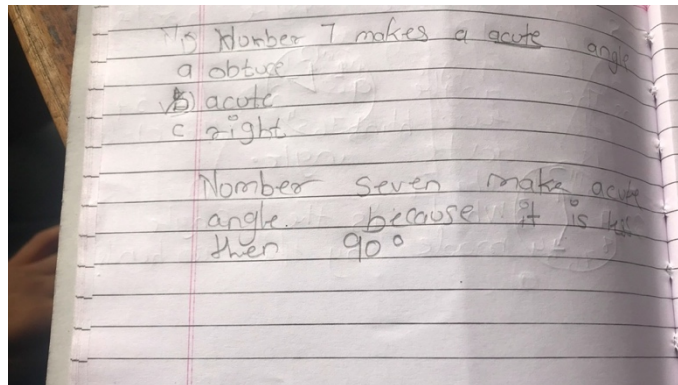 Number 7 makes a acute angle
a obtuse
b) acute
c right
Nomber seven make acute
angle. because it is less
then 90°